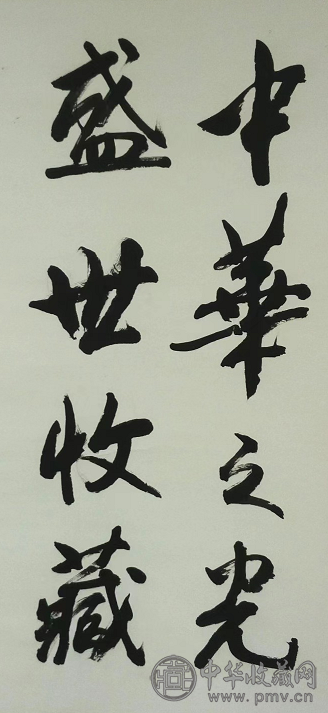 中華之光
盛世收藏
中华收藏网
www.pmv.cn